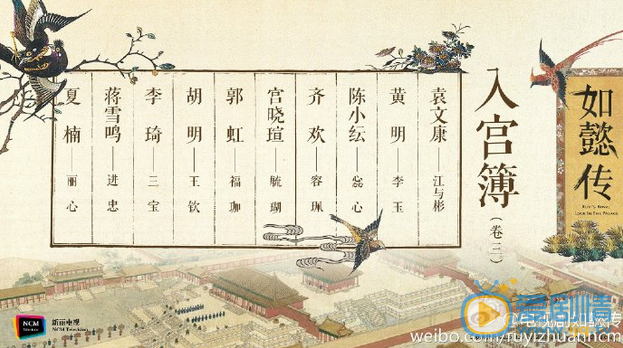 如懿传
RUYI'S ROYAL
LOVE IN THE PALACE
入宫簿(卷三)
袁文康——江与彬
黄明——李玉
陈小纭——惢心
齐欢——容珮
宫晓瑄——毓瑚
郭虹——福珈
胡明——王钦
李琦——三宝
蒋雪鸣——进忠
夏楠——丽心
NCM
新丽电视
NCM Television
爱剧情
weibo.com/ruyizhuanncm